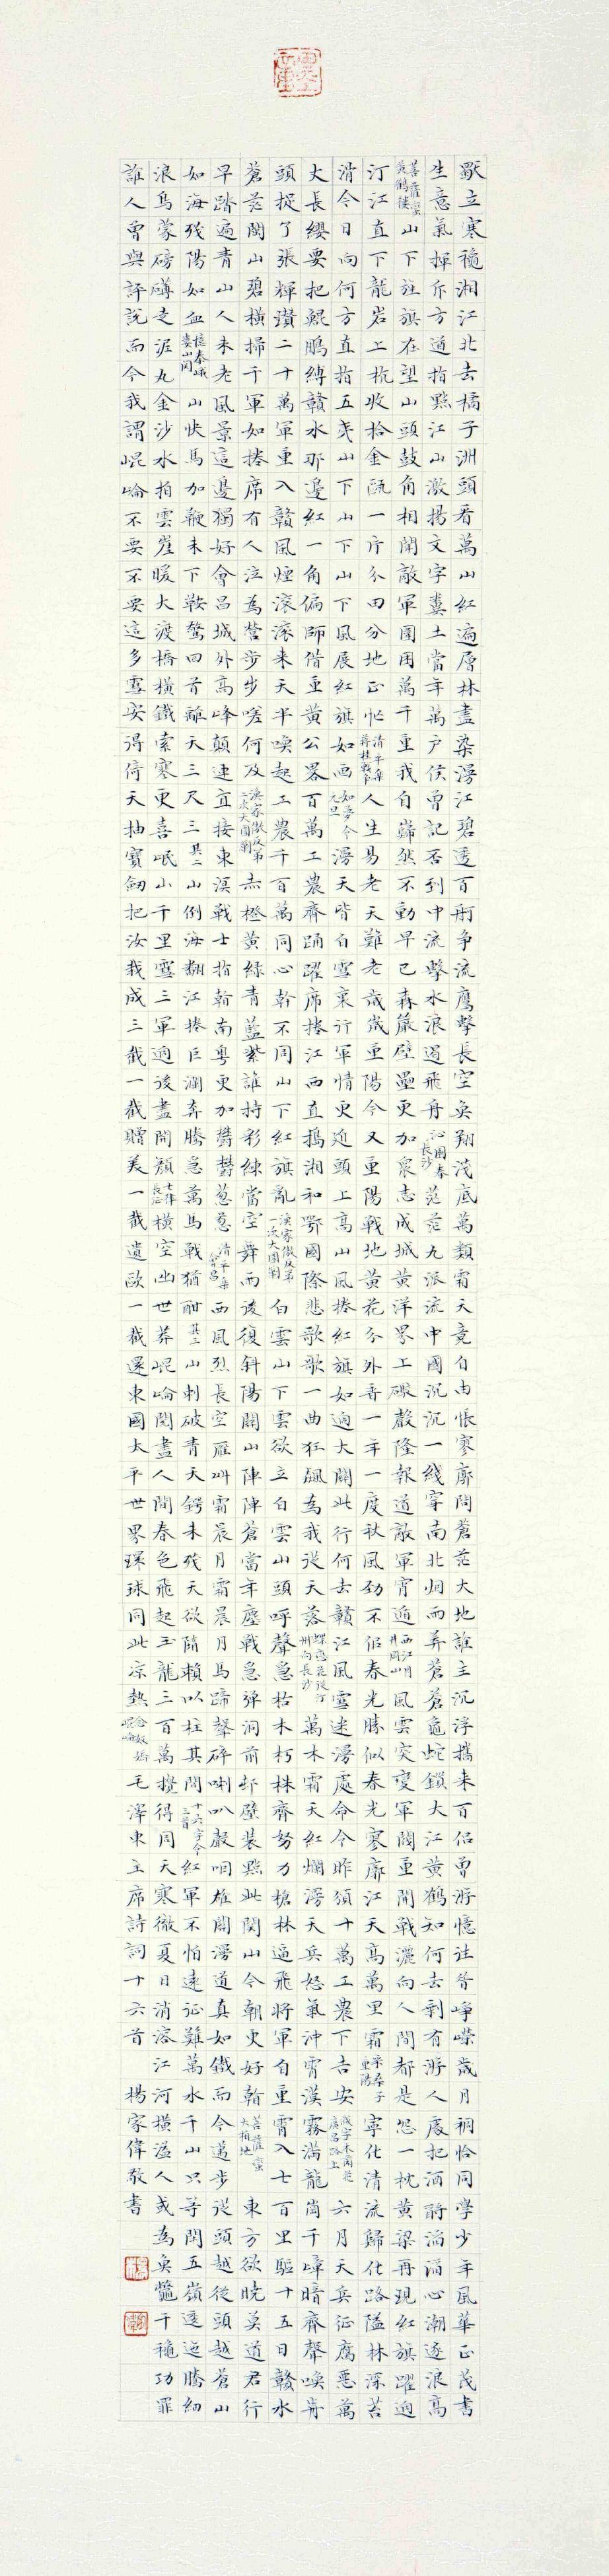 獨立寒穐湘江北去橘子洲頭看萬山紅遍層林盡染漫江碧透百舸争流鷹擊長空魚翔淺底萬類霜天竞自由悵寥廓問蒼茫大地誰主沉浮攜来百侣曾游憶往昔崢嶸歲月稠恰同學少年風華正茂書
生意氣揮斥方遒指點江山激揚文字糞土當年萬户侯曾記否到中流擊水浪遏飛舟沁園春長沙茫茫九派流中國沉沉一綫穿南北烟雨莽蒼蒼龜蛇鎖大江黄鶴知何去剩有游人處把酒酹滔滔心潮逐浪高
菩薩蠻黄鶴樓山下旌旗在望山頭鼓角相聞敵軍圍困萬千重我自巋然不動早已森嚴壁壘更加衆志成城黄洋界上礮聲隆報道敵軍宵遁西江月井岡山風雲突變軍閥重開戰灑向人間都是怨一枕黄粱再現紅旗躍過
汀江直下龍岩上杭收拾金甌一片分田分地正忙清平樂蔣桂戰争人生易老天難老歲歲重陽今又重陽戰地黄花分外香一年一度秋風勁不似春光勝似春光寥廓江天高萬里霜采桑子重陽寧化清流歸化路隘林深苔
滑今日向何方直指武夷山下山下山下風展紅旗如画如夢令元旦漫天皆白雪裏行軍情更迫頭上高山風捲紅旗如過大關此行何去贛江風雪迷漫處命令昨頒十萬工農下吉安减字木蘭花廣昌路上六月天兵征腐惡萬
丈長纓要把鯤鵬縛贛水那邊紅一角偏師借重黄公畧百萬工農齊踊躍席捲江西直搗湘和鄂國際悲歌歌一曲狂飆為我從天落蝶戀花從汀州向長沙萬木霜天紅爛漫天兵怒氣沖霄漢霧滿龍岡千嶂暗齊聲喚前
頭捉了張輝瓚二十萬軍重入贛風煙滚滚来天半喚起工農千百萬同心幹不周山下紅旗亂漁家傲反第一次大圍剿白雲山下雲欲立白雲山頭呼聲急枯木朽株齊努力槍林逼飛將軍自重霄入七百里驅十五日贛水
蒼茫閩山碧横掃千軍如捲席有人泣為營步步嗟何及漁家傲反第二次大圍剿赤橙黄緑青藍紫誰持彩練當空舞雨後復斜陽關山陣陣蒼當年鏖戰急彈洞前邨壁裝點此関山今朝更好看菩薩蠻大柏地東方欲曉莫道君行
早踏遍青山人未老風景這邊獨好會昌城外高峰顛連直接東溟戰士指看南粤更加鬱鬱蔥蔥清平樂會昌西風烈長空雁叫霜晨月霜晨月馬蹄聲碎喇叭聲咽雄關漫道真如鐵而今邁步從頭越從頭越蒼山
如海殘陽如血憶秦娥婁山関山快馬加鞭未下鞍驚回首離天三尺三其二山倒海翻江捲巨瀾奔騰急萬馬戰猶酣其三山刺破青天鍔未殘天欲墮賴以柱其間十六字令三首紅軍不怕遠征難萬水千山只等閒五嶺逶迤騰細
浪烏蒙磅礴走泥丸金沙水拍雲崖暖大渡橋横鐵索寒更喜岷山千里雪三軍過後盡開顔七律長征横空出世莽崐崘閲盡人間春色飛起玉龍三百萬攪得周天寒徹夏日消溶江河横溢人或為魚鼈千穐功罪
誰人曾與評說而今我謂崐崘不要不要這多雪安得倚天抽寶劍把汝裁成三截一截贈美一截遺歐一截還東國太平世界環球同此凉熱念奴嬌崐崘毛澤東主席詩詞十六首 楊家偉敬書